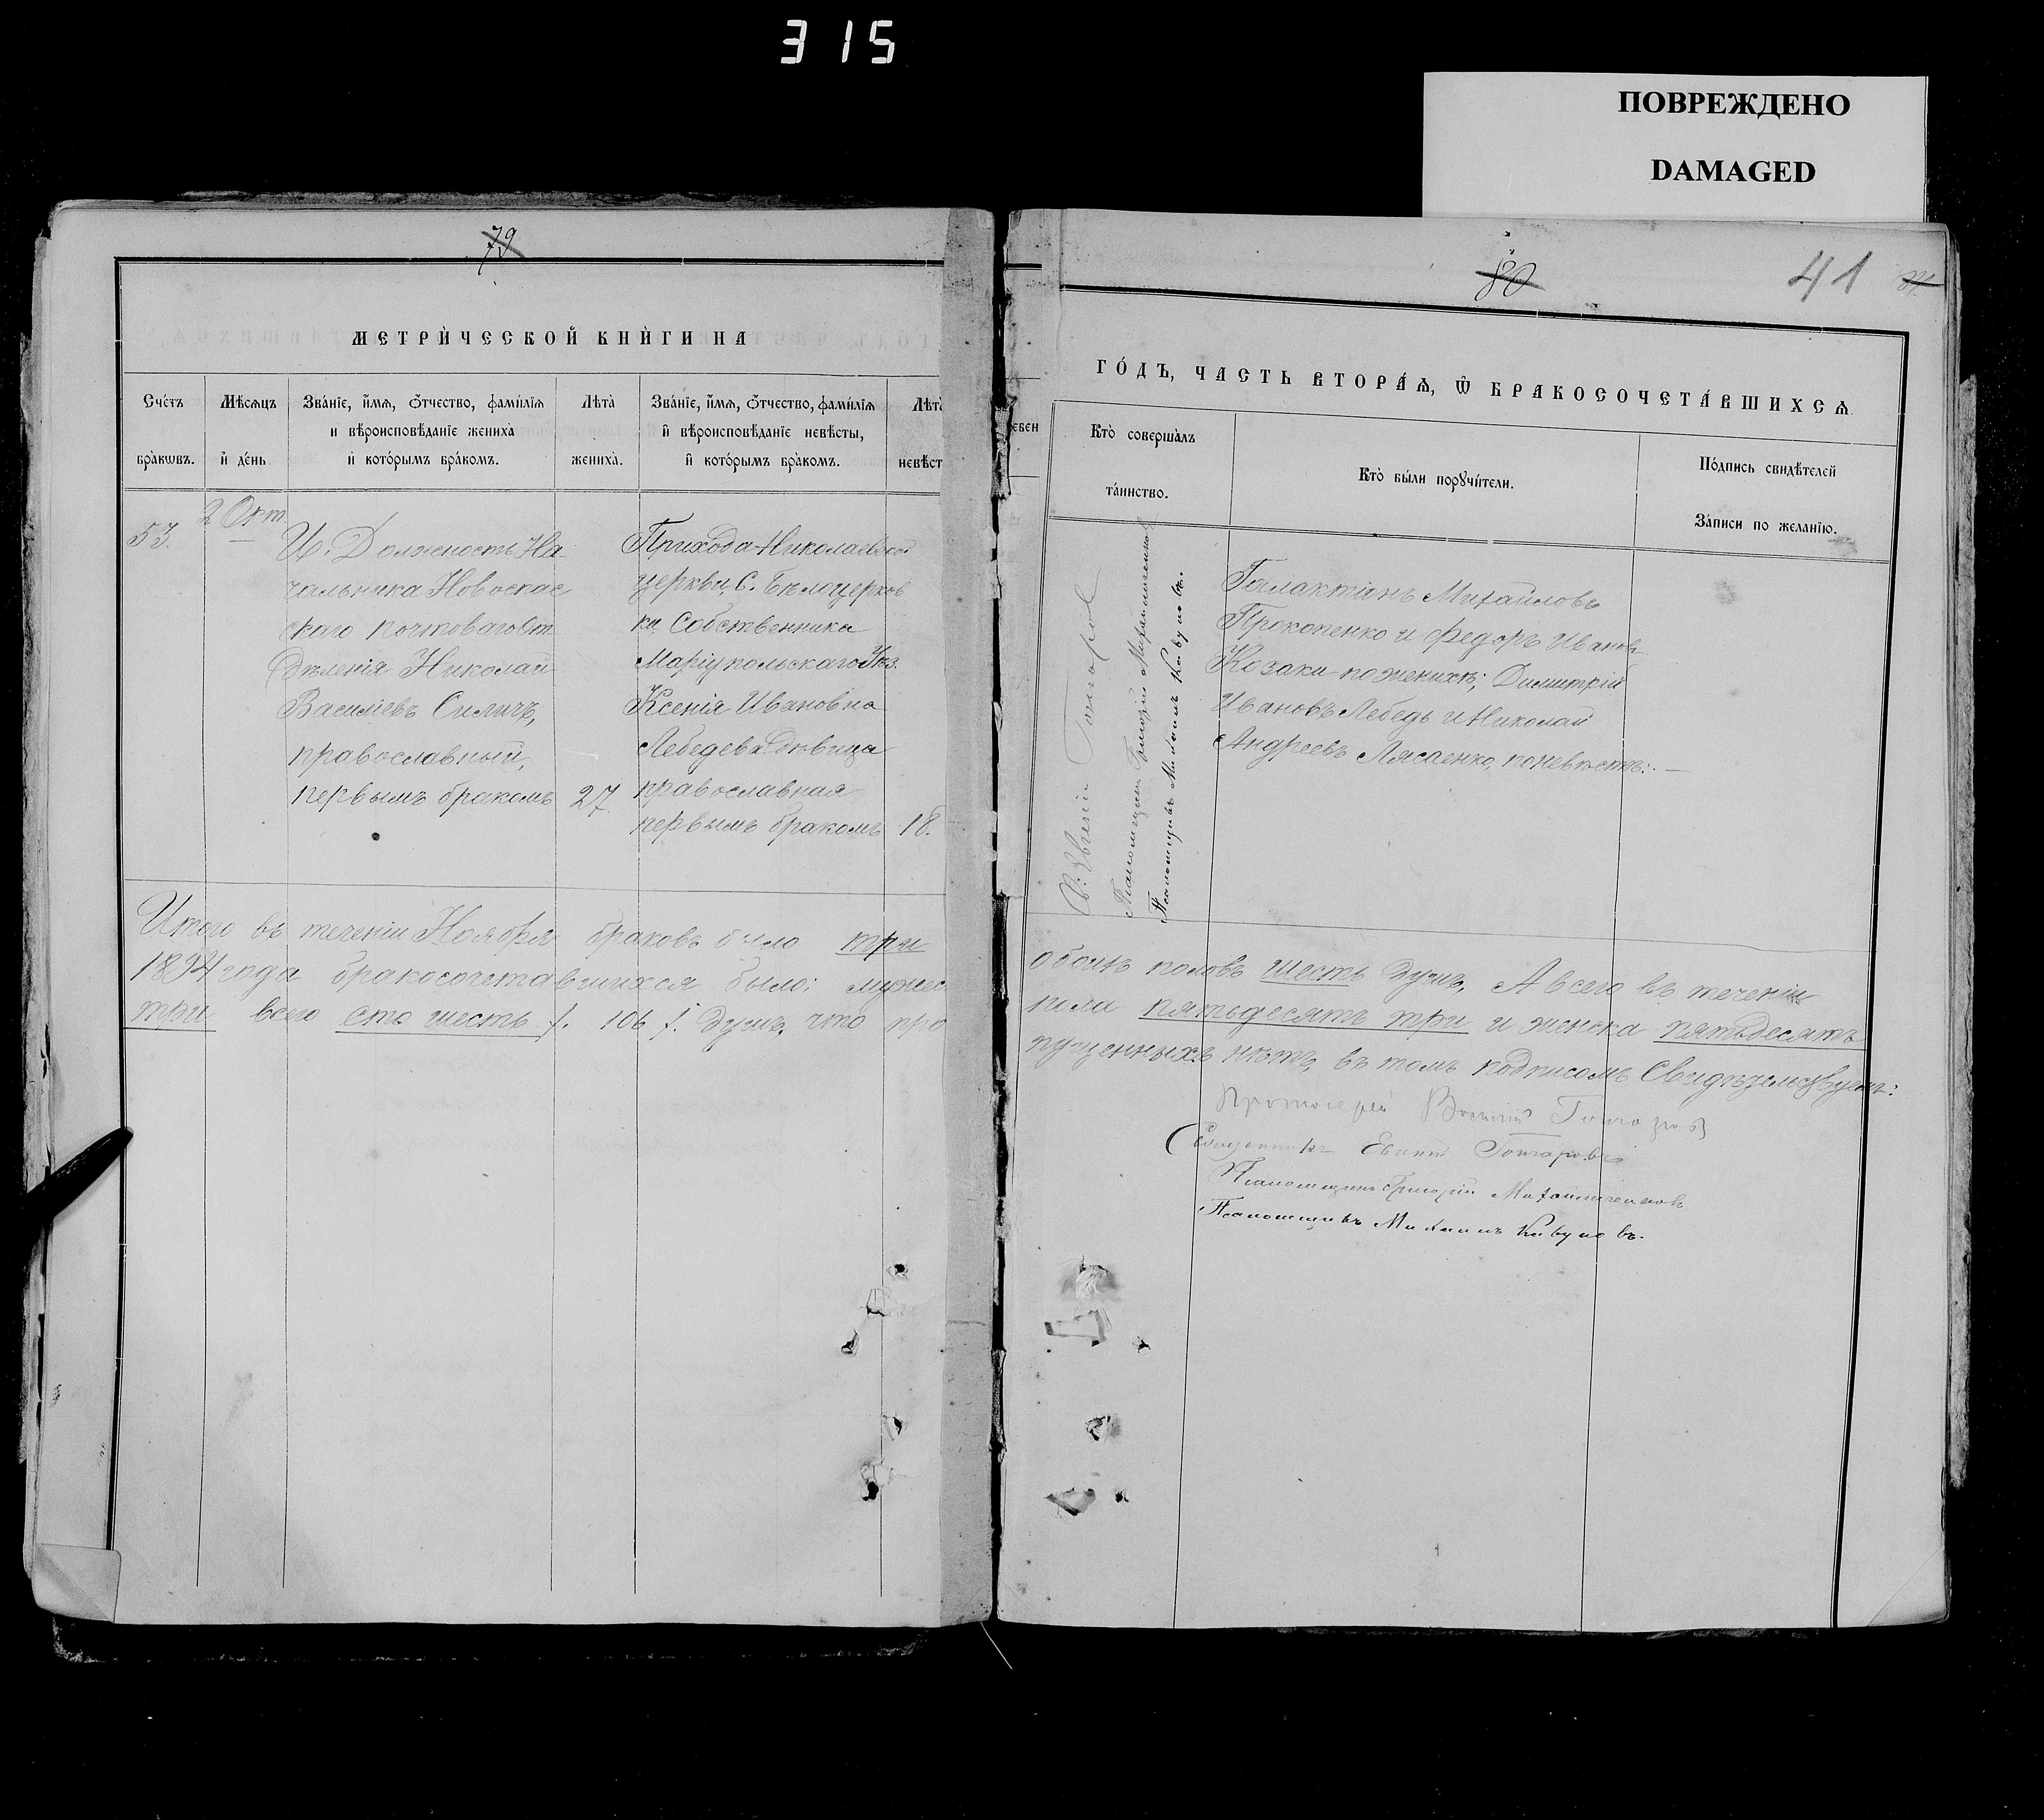 315
ПОВРЕЖДЕНО
DAMAGED
79
МЕТРИ́ЧЕСКОЙ КНИ́ГИ НА
Сче́тъ бра́кѡвъ.
Мѣ́сѧцъ и҆ де́нь
Зва́нїе, и҆́мѧ, ѻ҆́тчество, фами́лїѧ
и҆ вѣроисповѣ́данїе жениха̀
и҆ кото́рымъ бра́комъ.
Лѣта̀ жениха̀.
Зва́нїе, и҆́мѧ, ѻ҆́тчество, фами́лїѧ
и҆ вѣроисповѣ́данїе невѣ́сты,
и҆ кото́рымъ бра́комъ.
Лѣта̀ невѣст
53.
2 Окт.
И. Должность На
чальника Новоспас
скаго почтоваго От
дѣленія Николай
Василіевъ Силичъ,
православный,
первымъ бракомъ
27
Прихода Николаевской
церкви, С. Бѣлоцерков
ки, Собственника
Маріупольскаго Уѣз.
Ксенія Ивановна
Лебедева девица
православная
первымъ бракомъ
18.
Итого въ теченіи Ноября браковъ было три
1894 года бракосочетавшихся было: мужес
три всего сто шесть /. 106 /. душъ, что про
80
41
ГО́ДЪ, ЧАСТЬ ВТОРА́Ѧ, Ѡ҆ БРАКОСОЧЕТА́ВШИХСѦ
Кто̀ соверша́лъ та́инство.
Кто̀ бы́ли порꙋчи́тели.
По́дпись свидѣ́телей
За́писи по жела́нїю.
Св: Евгеній Гончаров
Псаломщикъ Григорій Михайличенков
Псаломщикъ Михаилъ Кавуновъ.
Галактіонъ Михайловъ
Прокопенко и Федоръ Иванов
Козаки по женихѣ; Димитрій
Ивановъ Лебедь и Николай
Андреевъ Лясаенко, по невѣстѣ: —
обоихъ половъ шесть душъ, А всего въ теченіи
пола пятьдесятъ три и женска пятьдесятъ
пущенныхъ нѣтъ, въ томъ подписомъ Свидѣтельствуемъ:
Протоіерей Василій Гончаров
Священникъ Евгеній Гончаровъ
Псаломщикъ Григорій Михайличенковъ
Псаломщикъ Михаилъ Кавуновъ.